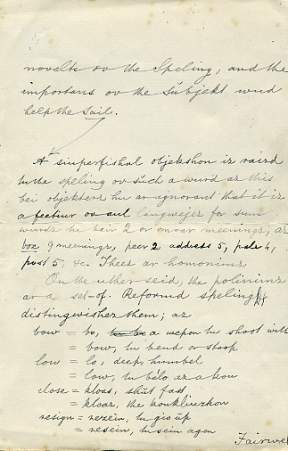 novelte ov the Speling, and the
importans ov the Subjekt wud
help the Sail.
A superfishal objekshon iz raizd
tu the speling ov such a wurd as this
bei objekterz hu ar ignorant that it iz
a feetur ov aul langwejez for sum
wurdz tu hav 2 or mor meeningz, az
box 9 meeningz, peer 2 address 5, pale 4,
post 5, &c. Theez ar homonimz
On the uther seid, the
ar a set of Reformd speling
distingwishez them; az
bow = bo, a wepon tu shoot with
= bow, tu bend or stoop
low = lo, deep, humbel
= low, tu belo az a kow
close = kloas, shut fast
= kloaz, the konkluzhon
resign = rezein, tu giv up
= resein, tu sein agen
Fairwel